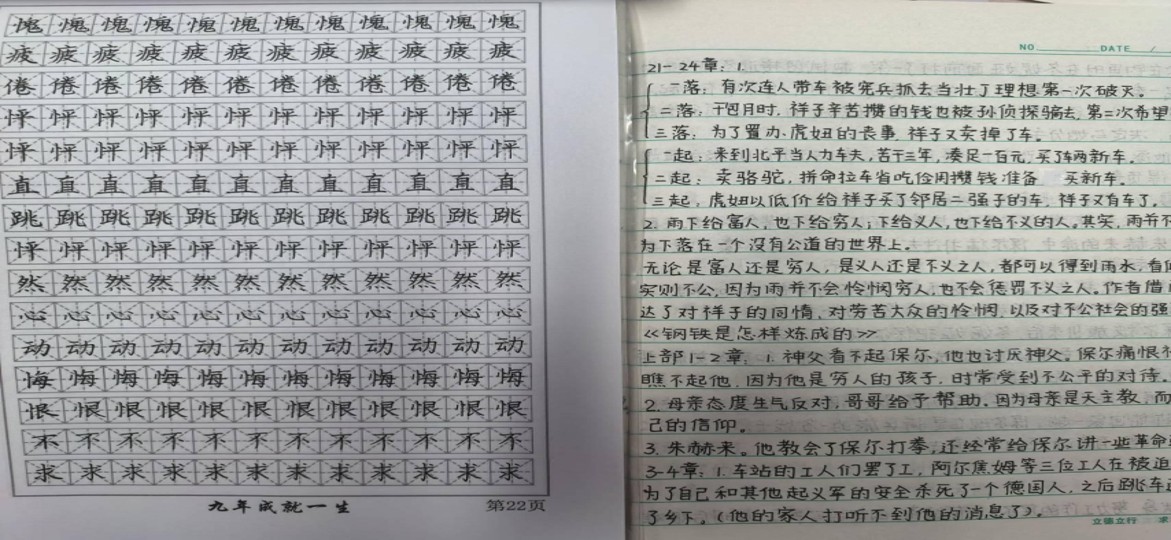 愧 愧 愧 愧 愧 愧 愧 愧 愧 愧 愧 愧
疲 疲 疲 疲 疲 疲 疲 疲 疲 疲 疲 疲
倦 倦 倦 倦 倦 倦 倦 倦 倦 倦 倦 倦
怦 怦 怦 怦 怦 怦 怦 怦 怦 怦 怦 怦
怦 怦 怦 怦 怦 怦 怦 怦 怦 怦 怦 怦
直 直 直 直 直 直 直 直 直 直 直 直
跳 跳 跳 跳 跳 跳 跳 跳 跳 跳 跳 跳
怦 怦 怦 怦 怦 怦 怦 怦 怦 怦 怦 怦
然 然 然 然 然 然 然 然 然 然 然 然
心 心 心 心 心 心 心 心 心 心 心 心
动 动 动 动 动 动 动 动 动 动 动 动
悔 悔 悔 悔 悔 悔 悔 悔 悔 悔 悔 悔
恨 恨 恨 恨 恨 恨 恨 恨 恨 恨 恨 恨
不 不 不 不 不 不 不 不 不 不 不 不
求 求 求 求 求 求 求 求 求 求 求 求
九年成就一生 第22页
NO DATE /
21-24章：1.
一落：有次连人带车被宪兵抓去当壮丁理想第一次破灭。
二落：干包月时，祥子辛苦攒的钱也被孙侦探骗去，第二次希望
三落：为了置办虎妞的丧事，祥子又卖掉了车。
一起：来到北平当人力车夫，苦干三年，凑足一百元，买了辆新车。
二起：卖骆驼，拼命拉车省吃俭用攒钱准备 买新车。
三起：虎妞以低价给祥子买了邻居二强子的车，祥子又有车了。
2. 雨下给富人，也下给穷人；下给义人，也下给不义的人。其实，雨并不
为下落在一个没有公道的世界上。
无论是富人还是穷人，是义人还是不义之人，都可以得到雨水，看似
实则不公，因为雨并不会怜悯穷人，也不会惩罚不义之人。作者借
达了对祥子的同情，对劳苦大众的怜悯，以及对不公社会的强
《钢铁是怎样炼成的》
上部1-2章：1. 神父看不起保尔，他也讨厌神父。保尔痛恨神
瞧不起他，因为他是穷人的孩子，时常受到不公平的对待。
2. 母亲态度生气反对，哥哥给予帮助。因为母亲是天主教，而
己的信仰。
3. 朱赫来。他教会了保尔打拳，还经常给保尔讲一些革命
3-4章：1. 车站的工人们罢了工，阿尔焦姆等三位工人在被迫
为了自己和其他起义军的安全杀死了一个德国人，之后跳车
了乡下。（他的家人打听不到他的消息了）。
立德立行 求